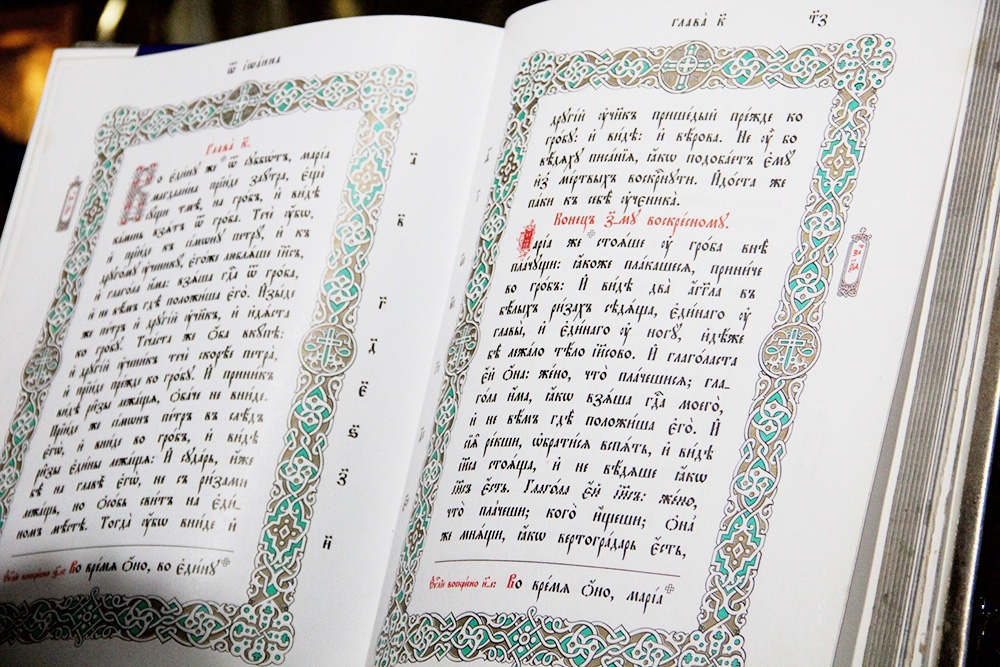 Ѿ іѡа́нна
Глава̀ к҃.
Во є҆ди́ну же ѿ сꙋббѡ́тъ, марі́а
магдали́на прїи́де заꙋ́тра, є҆щѐ
сꙋ́щей тмѣ̀, на гро́бъ, и҆ ви́дѣ
ка́мень взѧ́тъ ѿ гро́ба. Течѐ ᲂу҆̀бѡ,
и҆ прїи́де къ сі́мѡнꙋ петрꙋ̀, и҆ къ
дрꙋго́мꙋ ᲂу҆чн҃кꙋ̀, є҆го́же люблѧ́ше і҆и҃съ,
и҆ глаго́ла и҆́ма: взѧ́ша гдⷭ҇а ѿ гро́ба,
и҆ не вѣ́мъ гдѣ̀ положи́ша є҆го̀. И҆зы́де
же пе́тръ и҆ дрꙋгі́й ᲂу҆чн҃къ, и҆ и҆дѧ́ста
ко гро́бꙋ. Теча́ста же ѻ҆́ба вкꙋ́пѣ:
и҆ дрꙋгі́й ᲂу҆чн҃къ течѐ скорѣ́е петра̀,
и҆ прїи́де пре́жде ко гро́бꙋ. И҆ прини́къ
ви́дѣ ри̑зы лежа́щѧ, ѻ҆ба́че не вни́де.
Прїи́де же сі́мѡнъ пе́тръ в̾ слѣ́дъ
є҆гѡ̀, и҆ вни́де во гро́бъ, и҆ ви́дѣ
ри̑зы є҆ди̑ны лежа́щѧ: И҆ сꙋда́рь, и҆́же
бѣ̀ на главѣ̀ є҆гѡ̀, не съ ри́зами
лежа́щь, но ѻ҆со́бь сви́тъ на є҆ди́-
номъ мѣ́стѣ. Тогда̀ ᲂу҆̀бѡ вни́де и҆
Во вре́мѧ ѻ҆́но, во є҆ди́нꙋ
а҃
в҃
г҃
д҃
є҃
ѕ҃
з҃
и҃
глава̀ к҃
т҃з
дрꙋгі́й ᲂу҆чн҃къ прише́дый пре́жде ко
гро́бꙋ: и҆ ви́дѣ: и҆ вѣ́рова. Не ᲂу҆̀ бо
вѣ́дѧхꙋ писа́нїѧ, ꙗ҆́кѡ подоба́етъ є҆мꙋ̀
и҆з̾ ме́ртвыхъ воскрⷭ҇нꙋти. И҆до́ста же
па́ки къ себѣ̀ ᲂу҆чн҃ика̀.
Коне́цъ з҃_мꙋ воскре́сномꙋ.
Марі́а же стоѧ́ше ᲂу҆ гро́ба внѣ̀
пла́чꙋщи: ꙗ҆́коже пла́кашесѧ, прини́че
во гро́бъ: И҆ ви́дѣ два̀ а҆́гг҃ла въ
бѣ́лыхъ ри́захъ сѣдѧ̑ща, є҆ди́наго ᲂу҆
главы̀, и҆ є҆ди́наго ᲂу҆ ногꙋ̀, и҆дѣ́же
бѣ̀ лежа́ло тѣ́ло і҆и҃сово. И҆ глаго́ласта
є҆́й ѻ҆́на: же́но, что̀ пла́чешисѧ; гла-
го́ла и҆́ма, ꙗ҆́кѡ взѧ́ша гдⷭ҇а моего̀,
и҆ не вѣ́мъ гдѣ̀ положи́ша є҆го̀. И҆
сїѧ̑ ре́кши, ѡ҆брати́сѧ вспѧ́ть, и҆ ви́дѣ
і҆и҃са стоѧ́ща, и҆ не вѣ́дѧше ꙗ҆́кѡ
і҆и҃съ є҆́сть. Глаго́ла є҆́й і҆и҃съ: же́но,
что̀ пла́чеши; кого̀ и҆́щеши; Ѻ҆на́
же мнѧ́щи, ꙗ҆́кѡ вертогра́дарь є҆́сть,
Во вре́мѧ ѻ҆́но, марі́а